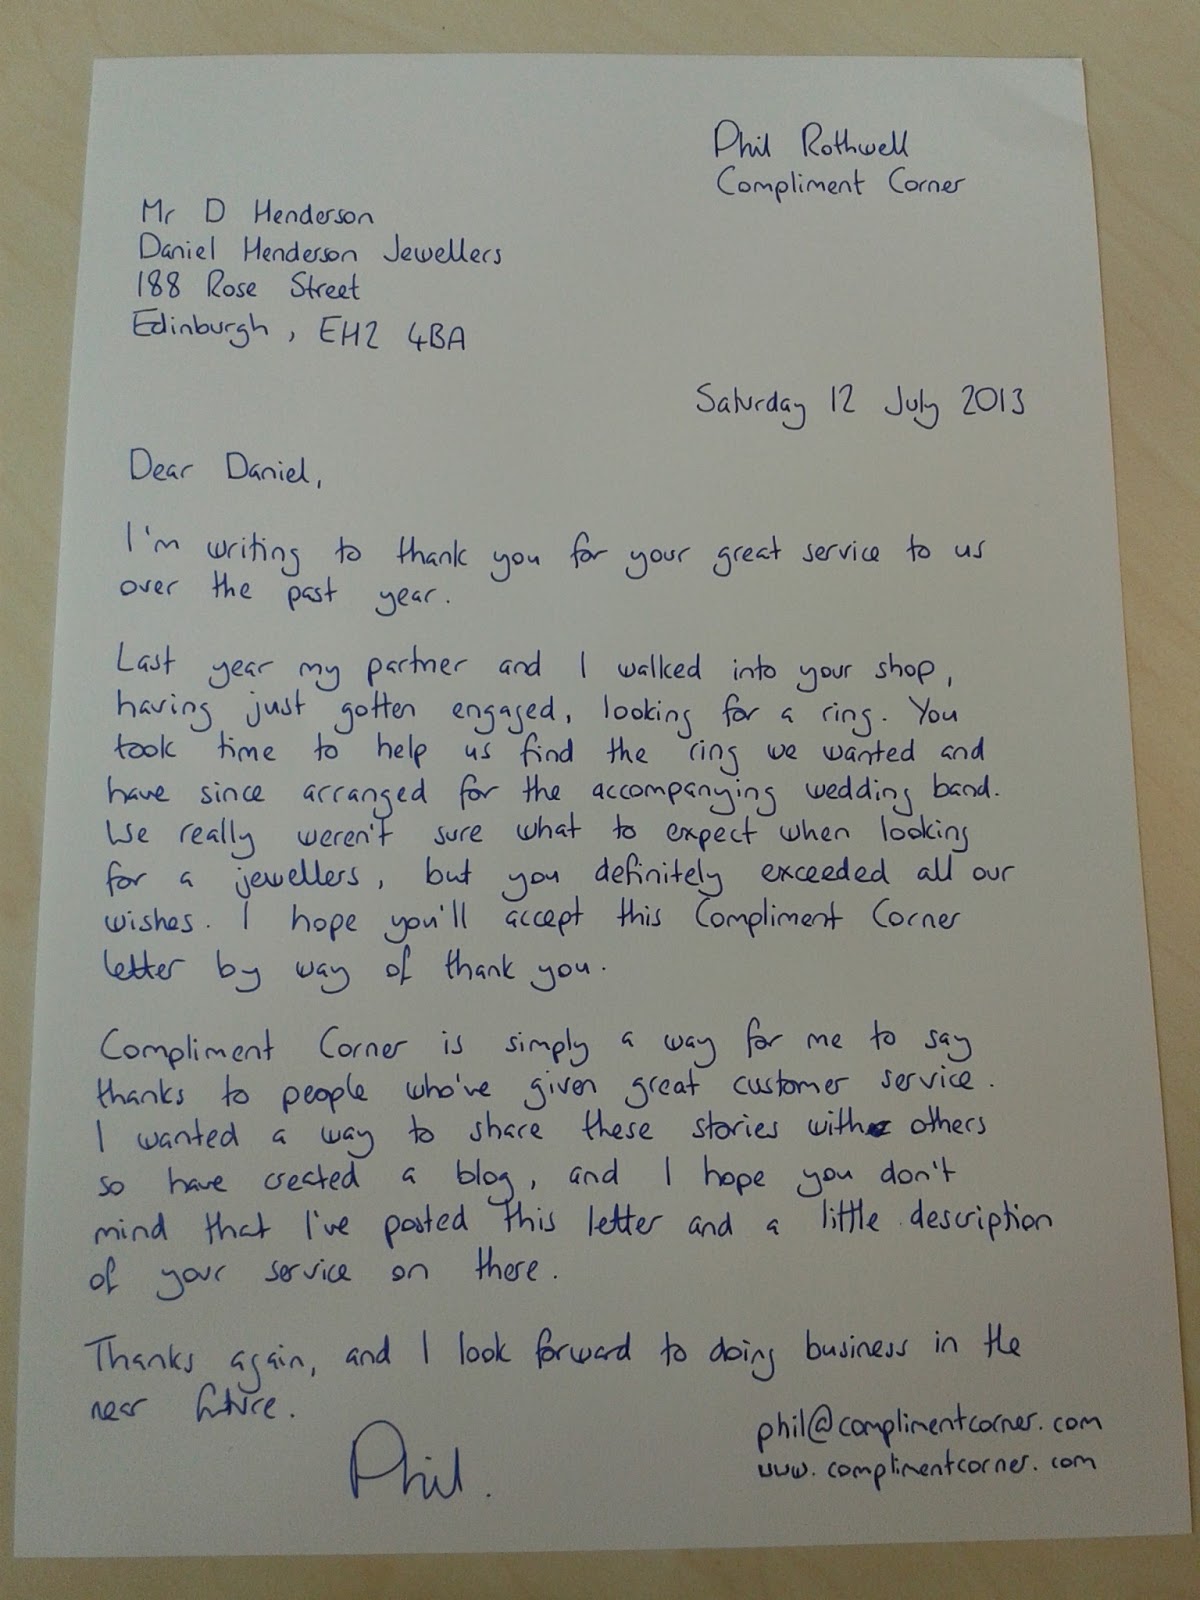 Phil Rothwell
Compliment Corner
Mr D Henderson
Daniel Henderson Jewellers
188 Rose Street
Edinburgh, EH2 4BA
Saturday 12 July 2013
Dear Daniel,
I'm writing to thank you for your great service to us
over the past year.
Last year my partner and I walked into your shop,
having just gotten engaged, looking for a ring. You
took time to help us find the ring we wanted and
have since arranged for the accompanying wedding band.
We really weren't sure what to expect when looking
for a jewellers, but you definitely exceeded all our
wishes. I hope you'll accept this Compliment Corner
letter by way of thank you.
Compliment Corner is simply a way for me to say
thanks to people who've given great customer service.
I wanted a way to share these stories with others
so have created a blog, and I hope you don't
mind that I've posted this letter and a little description
of your service on there.
Thanks again, and I look forward to doing business in the
near future.
Phil.
phil@complimentcorner.com
www.complimentcorner.com